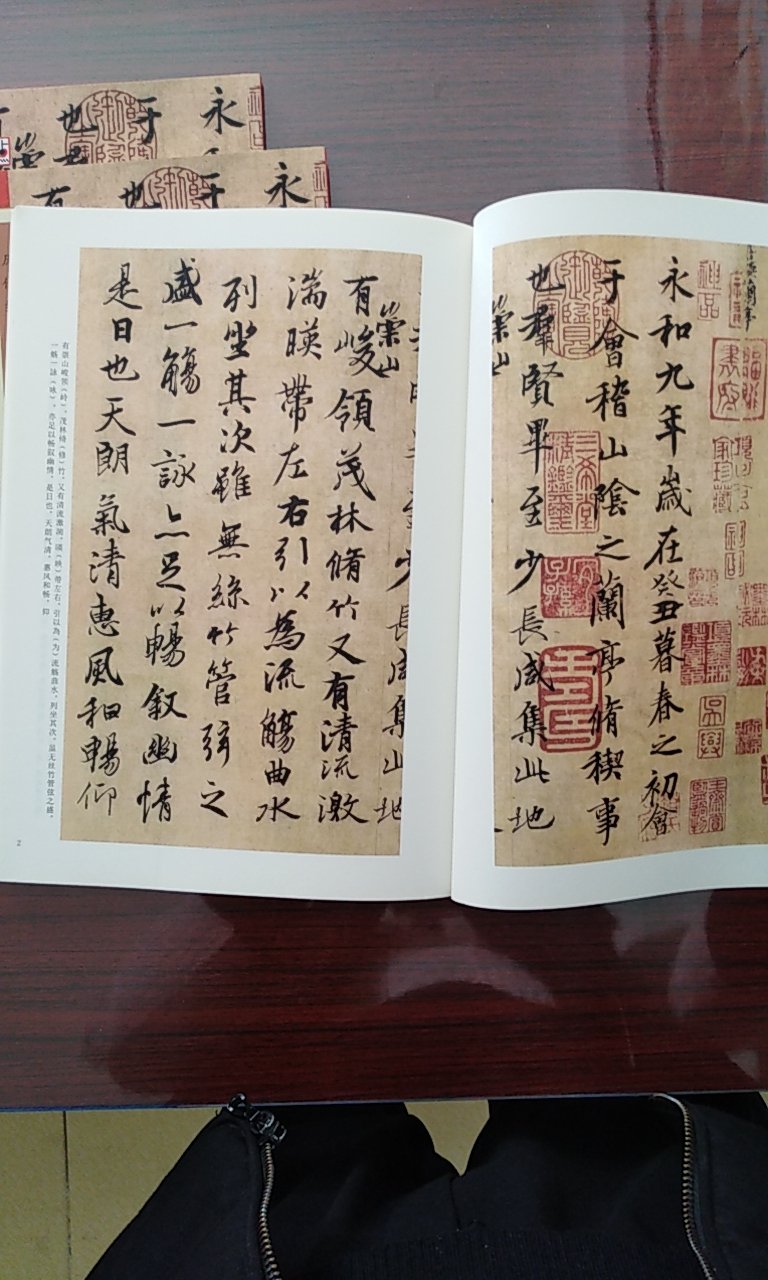 永和九年歲在癸丑暮春之初會
于會稽山陰之蘭亭脩稧事
也羣賢畢至少長咸集此地
崇山
至少長咸集此地
崇山
有峻領茂林脩竹又有清流激
湍暎帶左右引以為流觴曲水
列坐其次雖無絲竹管弦之
盛一觴一詠亦足以暢敘幽情
是日也天朗氣清惠風和暢仰
有崇山峻领（岭），茂林脩（修）竹，又有清流激湍，暎（映）带左右，引以為（为）流觞曲水，列坐其次。虽无丝竹管弦之盛，
一觞一詠（咏），亦足以畅叙幽情。是日也，天朗气清，惠风和畅，仰
2
永
于
也
永
于
也
有
神品